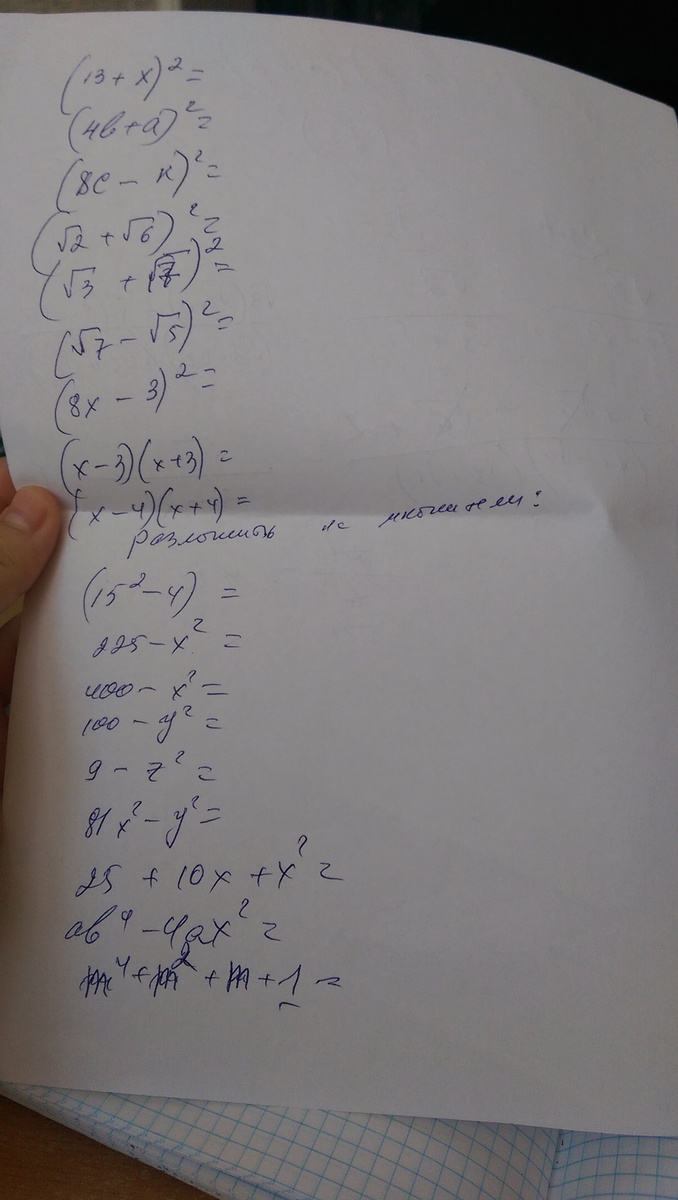 (13 + x)² =
(4b + a)² =
(8c - k)² =
(√2 + √6)² =
(√3 + √7)² =
(√7 - √5)² =
(8x - 3)² =
(x - 3)(x + 3) =
(x - 4)(x + 4) =
разложить на множители:
(15² - 4) =
225 - x² =
400 - x² =
100 - y² =
9 - z² =
81x² - y² =
25 + 10x + x² =
ab⁴ - 4ax² =
m⁴ + m² + m + 1 =